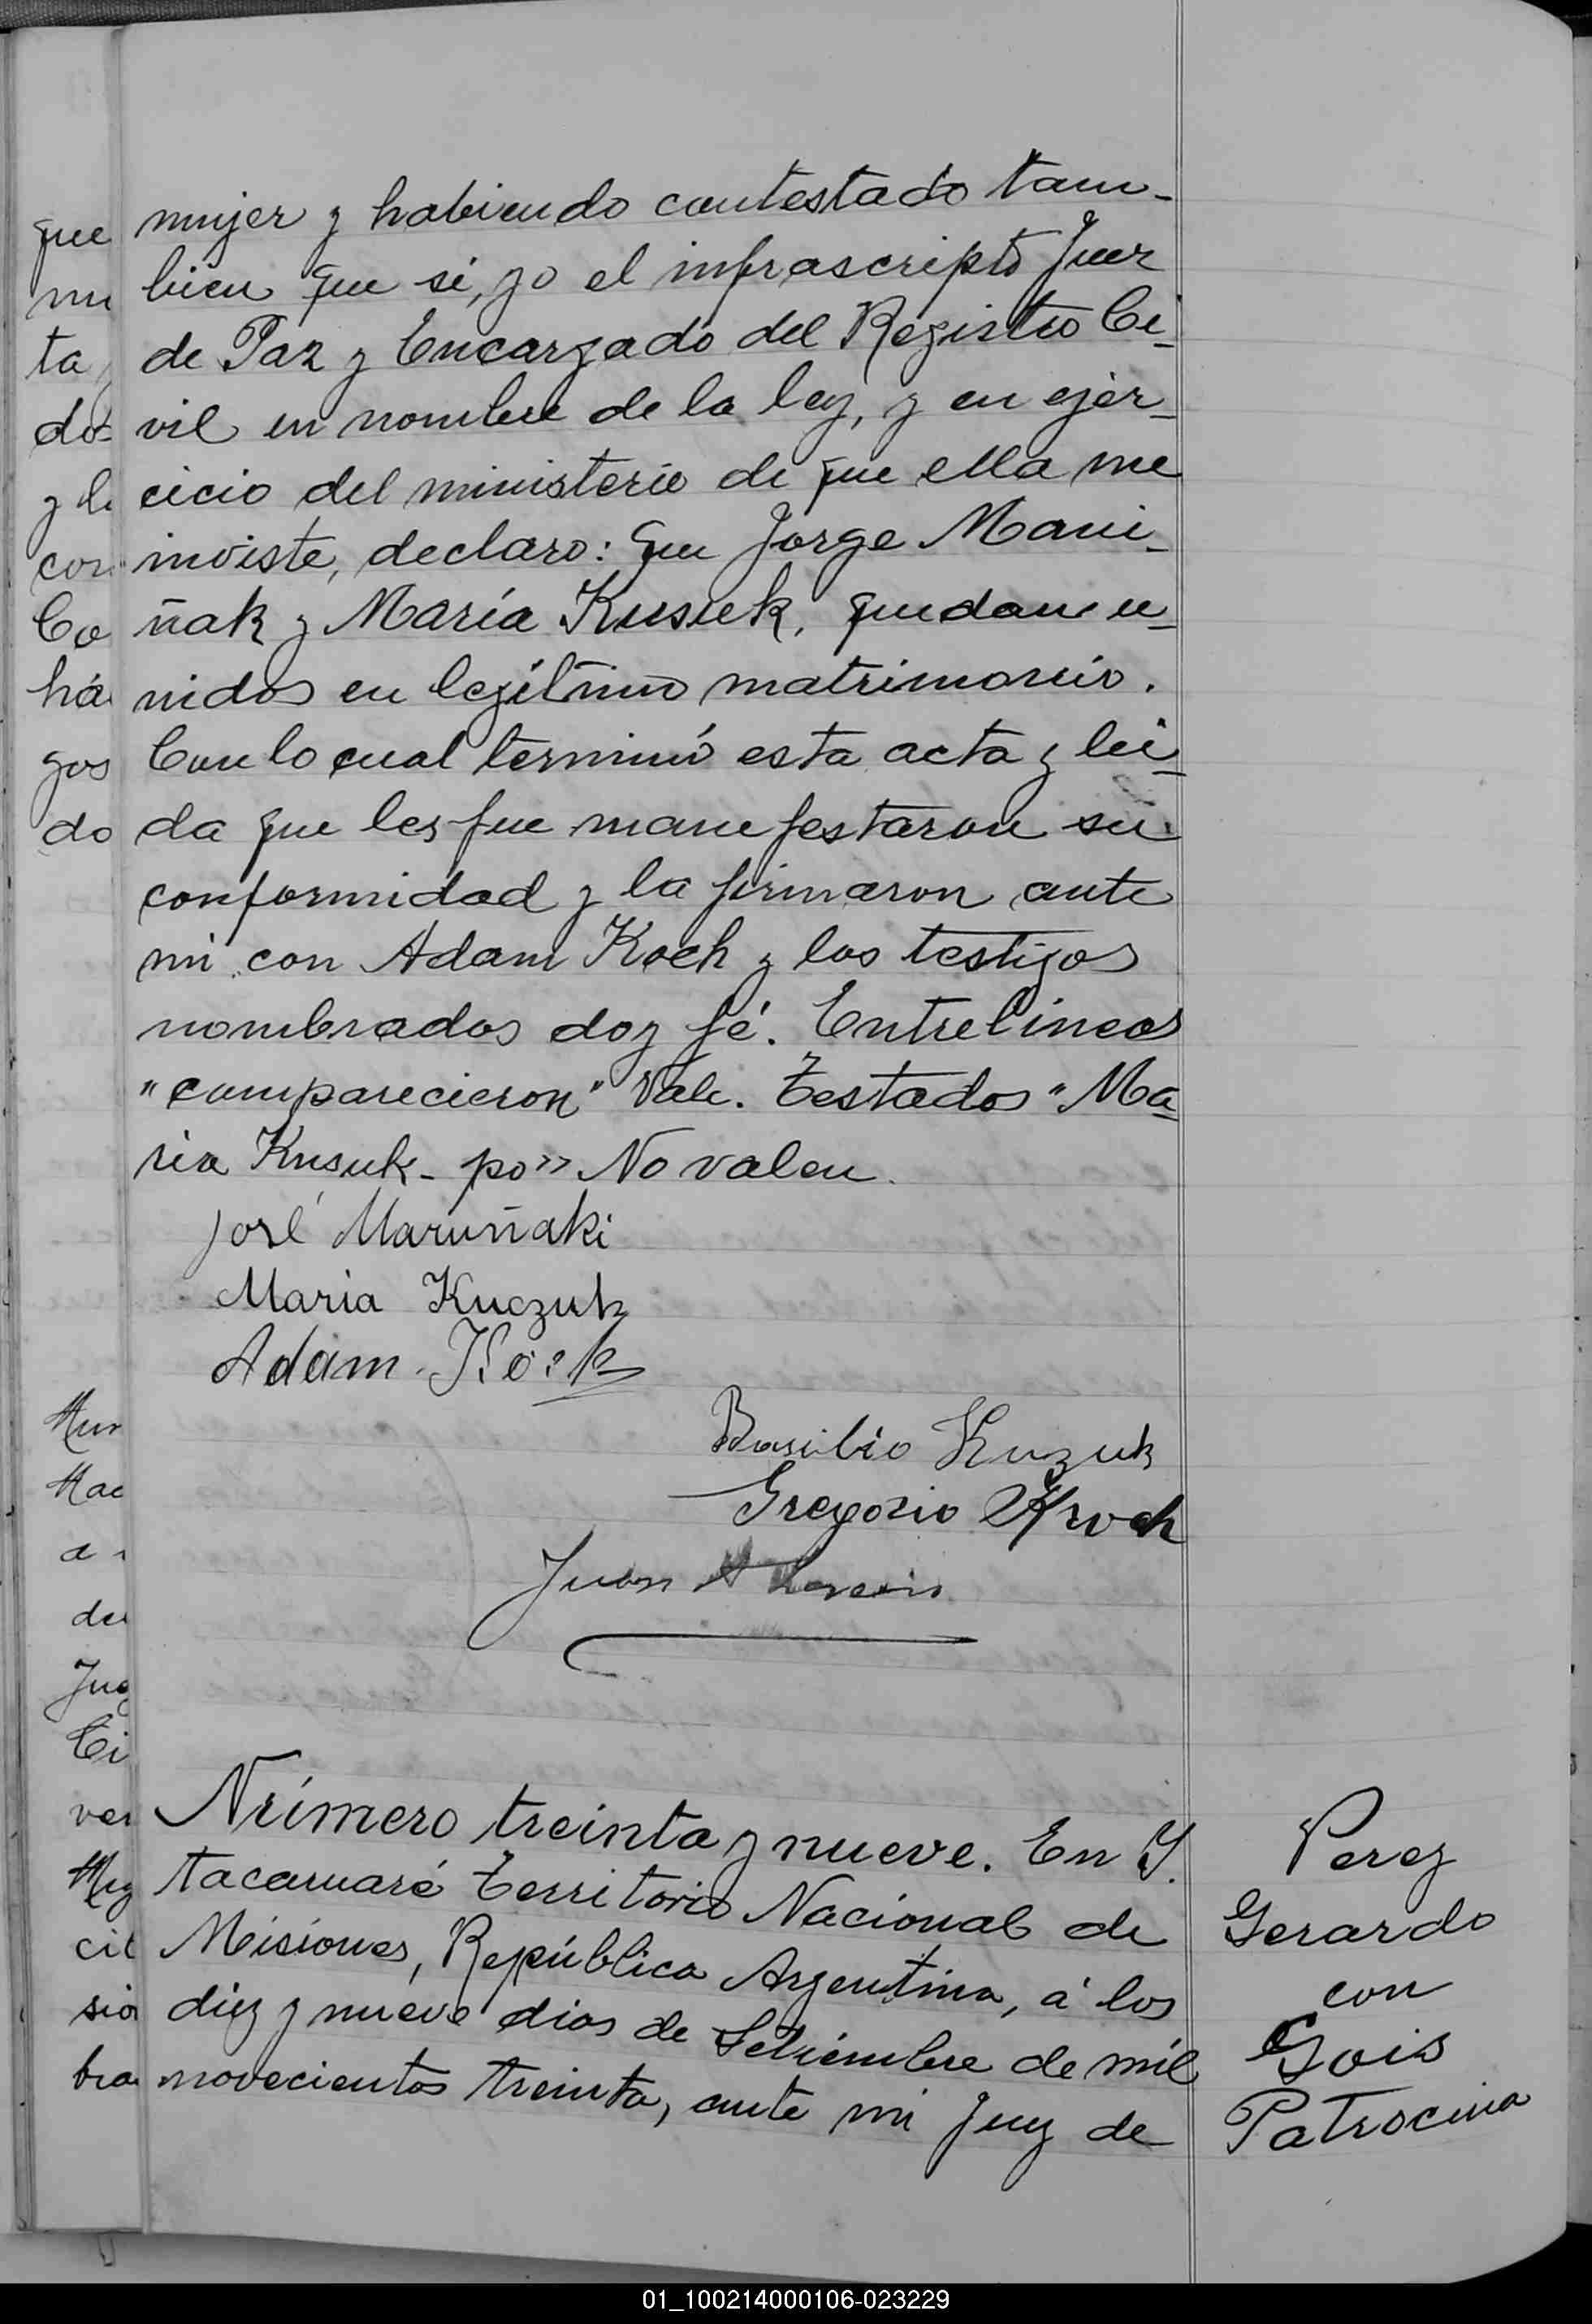 mujer y habiendo contestado tam-
bien que si, yo el infrascripto Juez
de Paz y Encargado del Registro Ci-
vil en nombre de la ley, y en ejer-
cicio del ministerio de que ella me
inviste, declaro: que Jorge Mani-
ñak y María Kusuk, quedan u-
nidos en legítimo matrimonio.
Con lo cual terminó esta acta y lei-
da que les fue manefestaron su
conformidad y la firmaron ante
mi con Adam Koch y los testigos
nombrados doy fé. Entrelineas
"comparecieron" Vale. Testados "Ma-
ria Kusuk- po" No valen.
José Maruñaki
Maria Kuczuk
Adam Kock
Basilio Kuzuk
Gregorio Kroch
Juan
Número treinta y nueve. En I.
tacaruaré Territorio Nacional de
Misiones, República Argentina, á los
diez y nueve dias de Setiembre de mil
novecientos treinta, ante mi Juez de
Perez
Gerardo
con
Gois
Patrocina
que
mu
ta
do
y la
con
Co
há
gos
do
Mun
Mac
a
de
Jug
Ci
ver
Mig
cil
sio
bra
01_100214000106-023229